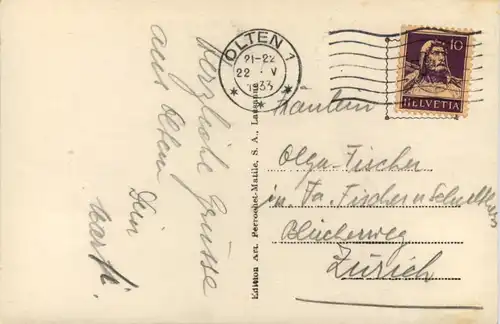 Herzliche Grüsse
aus Olten
Dein
Edition Art. Perrochet-Matile, S. A., Lausanne
OLTEN 1
21-22
22 V
1933
10
HELVETIA
Fräulein
Olga Fischer
in Fa. Fischer u
Bleicherweg
Zürich